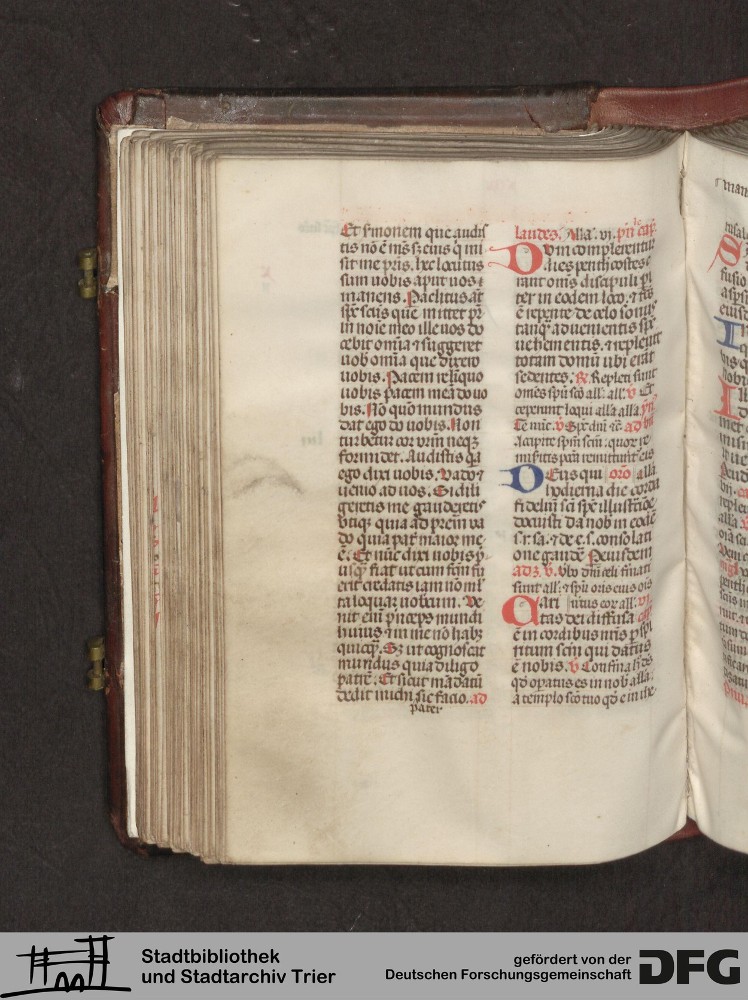 Et smonem que audis
tis nō ē ms sz eius q̄ mi
sit me pris. hec locutus
sum uobis aput uos
manens. Paclitus at
spc scūs que mittet pr
in noīe meo ille uos do
cebit omīa ⁊ suggeret
uob omīa que dixero
uobis. Pacem relīquo
uobis pacem meā do uo
bis. Nō quō mundus
dat ego do uobis. Non
turbetur cor vrm neqz
formidet. Audistis qa
ego dixi uobis. Vado ⁊
uenio ad uos. Si dili
geretis me gauderetis
vtiqz quia ad prem va
do quia pat maior me
ē. Et nūc dixi uobis p
usqz fiat ut cum fcm fu
erit credatis iam nō ml
ta loquar uobcum. Ve
nit eni pnceps mundi
huius ⁊ in me nō habz
quicqz. Sz ut cognoscat
mundus quia diligo
patrē. Et sicut mādatū
dedit michi sic facio. ad
pater
laudes. Alla. vi. pn cap
Dvm complerentur
dies penthecostes e
rant oms discipuli pi
ter in eodem loco. ⁊ fcs
ē repente de celo sonus
tanqz aduenientis spc
uehementis. ⁊ repleuit
totam domū ubi erāt
sedentes. R. Repleti sunt
omēs spū sco all. all. v Et
ceperunt loqui alla alla. yn
Te nūc. v Spc dni ⁊c ad bn
Accipite spm scm. quor re
miseritis pctā remittunt eis
DEus qui oro alla
hodierna die corda
fidelm sci spc illustrōe
docuisti da nob in eodē
s. r. sa. ⁊ de e. s. consolati
one gaudē P eiusdem
ad z. v. Vbo dni celi firmati
sunt all. ⁊ spū oris eius ois
Cari
tas dei diffusa
ē in cordibus nris p spi
ritum scm qui datus
ē nobis. v Confirma h ds
qd opatus es in nob alla.
A templo sco tuo qd e in ihe
Stadtbibliothek
und Stadtarchiv Trier
gefördert von der
Deutschen Forschungsgemeinschaft
DFG